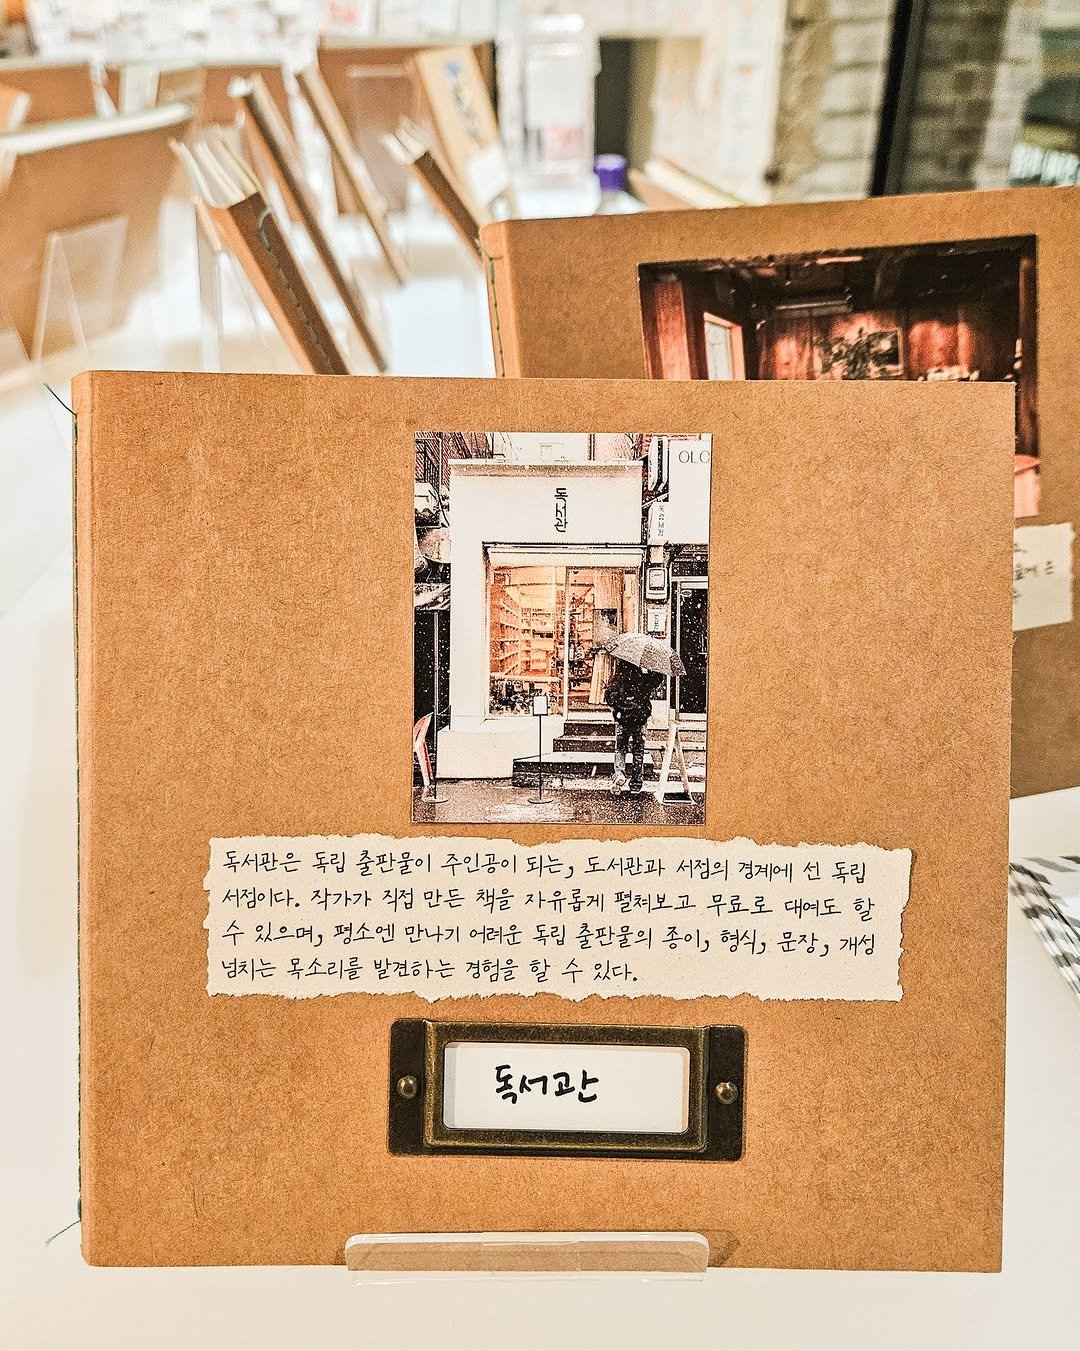 OLO
독서관
독서관은 독립 출판물이 주인공이 되는, 도서관과 서점의 경계에 선 독립
서점이다. 작가가 직접 만든 책을 자유롭게 펼쳐보고 무료로 대여도 할
수 있으며, 평소엔 만나기 어려운 독립 출판물의 종이, 형식, 문장, 개성
넘치는 목소리를 발견하는 경험을 할 수 있다.
독서관